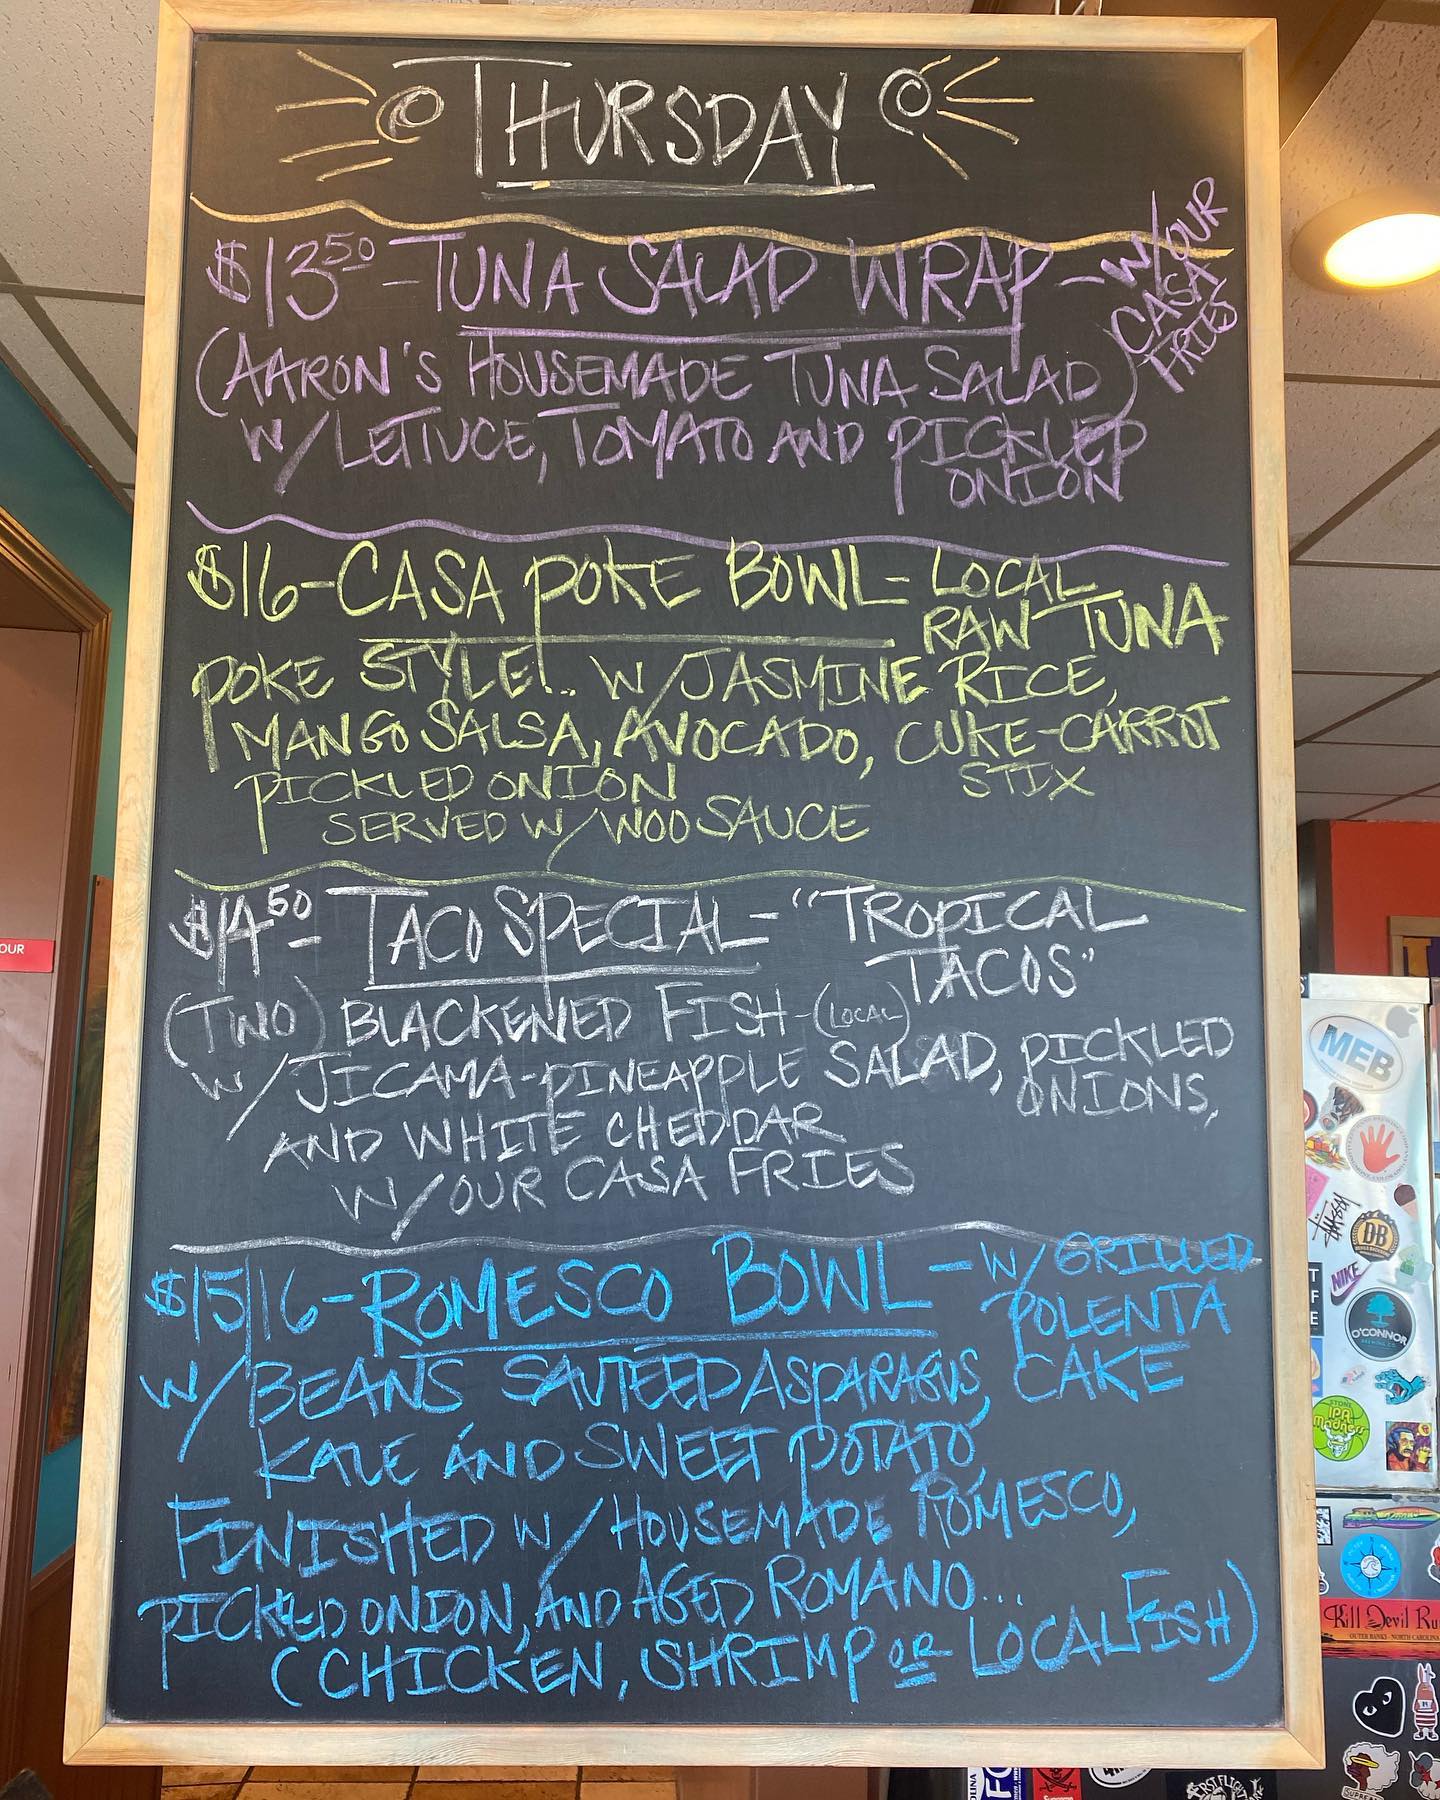 THURSDAY
$13.50 - TUNA SALAD WRAP - W/OUR
CASA
FRIES
(AARON'S HOUSEMADE TUNA SALAD)
W/ LETTUCE, TOMATO AND PICKLED
ONION
$16 - CASA POKE BOWL - LOCAL
RAW TUNA
POKE STYLE... W/ JASMINE RICE,
MANGO SALSA, AVOCADO, CUKE-CARROT
STIX
PICKLED ONION
SERVED W/ WOO SAUCE
$14.50 - TACO SPECIAL - "TROPICAL
TACOS"
(TWO) BLACKENED FISH - (LOCAL)
W/ JICAMA-PINEAPPLE SALAD, PICKLED
ONIONS,
AND WHITE CHEDDAR
W/ OUR CASA FRIES
$15|16 - ROMESCO BOWL - W/ GRILLED
POLENTA
CAKE
W/ BEANS SAUTEED ASPARAGUS,
KALE AND SWEET POTATO,
FINISHED W/ HOUSEMADE ROMESCO,
PICKLED ONION, AND AGED ROMANO...
(CHICKEN, SHRIMP OR LOCAL FISH)
OUR
MEB
DB
NIKE
O'CONNOR
STONE
IPA
Madness
Kill Devil Ru
OUTER BANKS - NORTH CAROLINA
FIRST FLIGHT